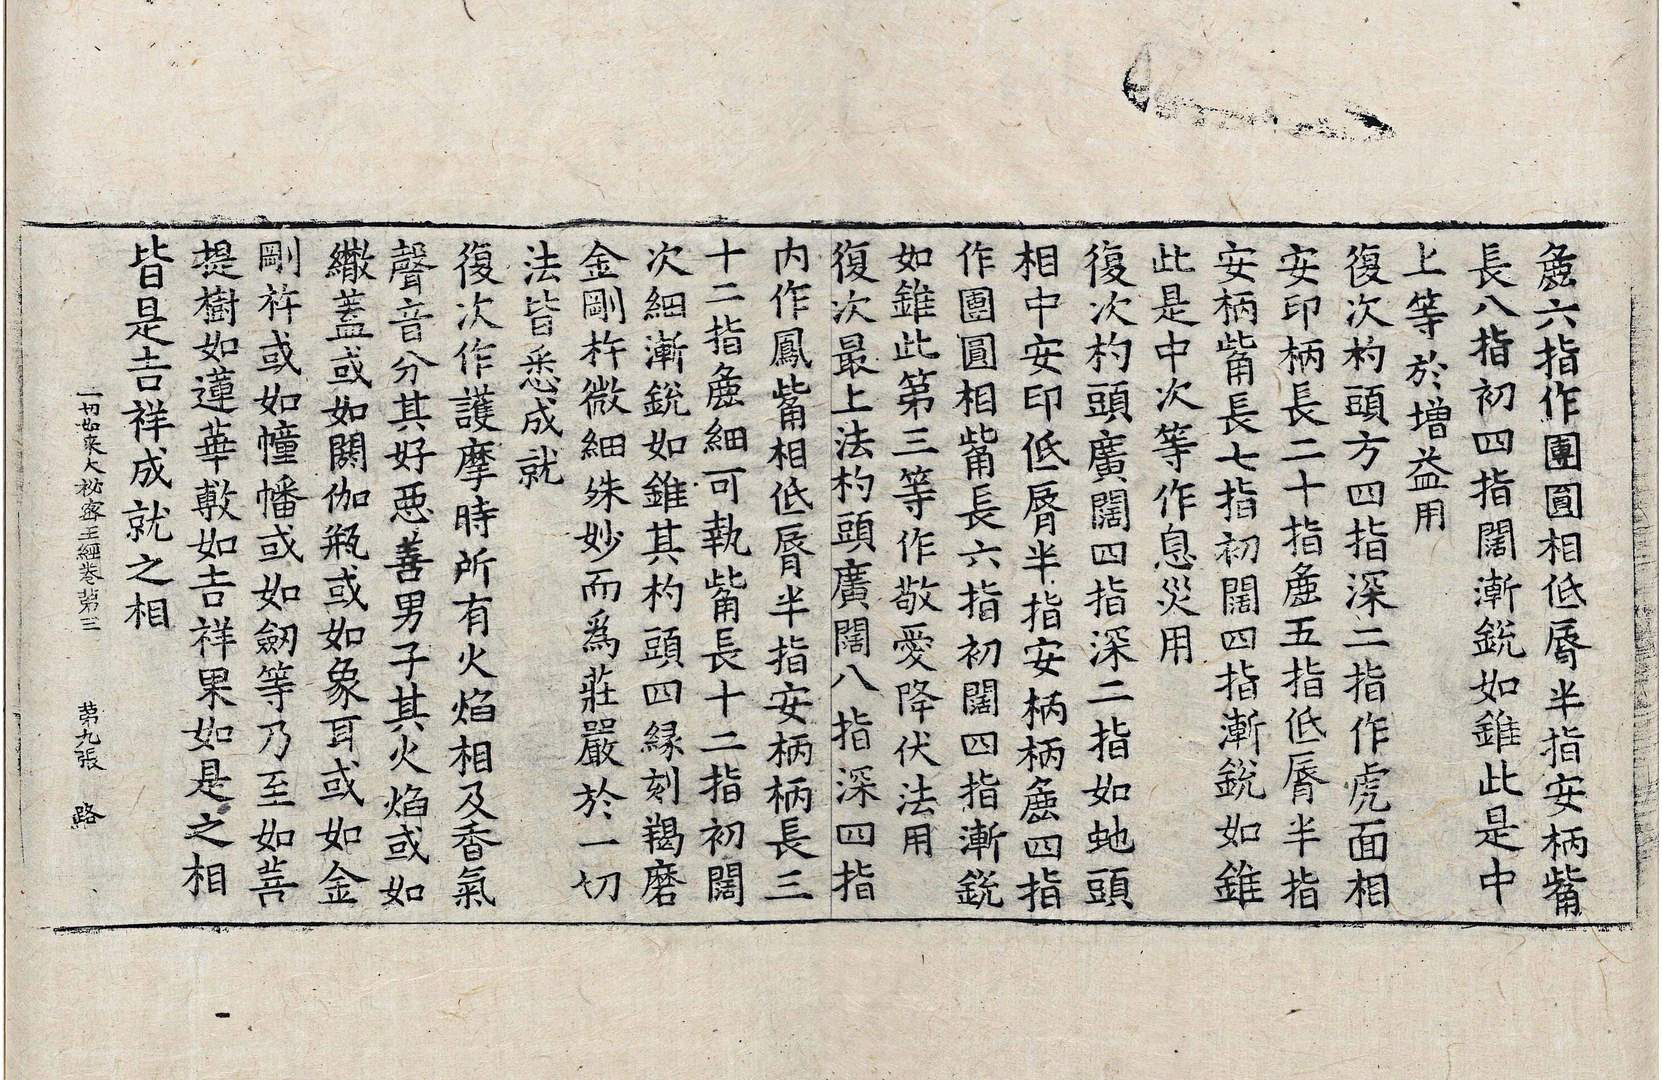 麁六指作團圓相低脣半指安柄觜
長八指初四指闊漸銳如錐此是中
上等於增益用
復次杓頭方四指深二指作虎面相
安印柄長二十指麁五指低脣半指
安柄觜長七指初闊四指漸銳如錐
此是中次等作息災用
復次杓頭廣闊四指深二指如虵頭
相中安印低脣半指安柄柄麁四指
作團圓相觜長六指初闊四指漸銳
如錐此第三等作敬愛降伏法用
復次最上法杓頭廣闊八指深四指
内作鳳觜相低脣半指安柄柄長三
十二指麁細可執觜長十二指初闊
次細漸銳如錐其杓頭四縁刻羯磨
金剛杵微細殊妙而爲莊嚴於一切
法皆悉成就
復次作護摩時所有火焰相及香氣
聲音分其好惡善男子其火焰或如
繖蓋或如閼伽瓶或如象耳或如金
剛杵或如幢幡或如劒等乃至如菩
提樹如蓮華敷如吉祥果如是之相
皆是吉祥成就之相
一切如來大祕密王經卷第三 第九張 路